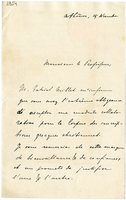 Athènes, 15 Décembre
Monsieur le Professeur
M. Gabriel Millet m'informe
que vous avez l'extrême obligeance
d'accepter ma modeste collabo-
ration pour le Corpus des inscrip-
tions grecques chrétiennes.
Je vous remercie de cette marque
de bienveillance & de confiance
et me promets de justifier
l'une & l'autre.